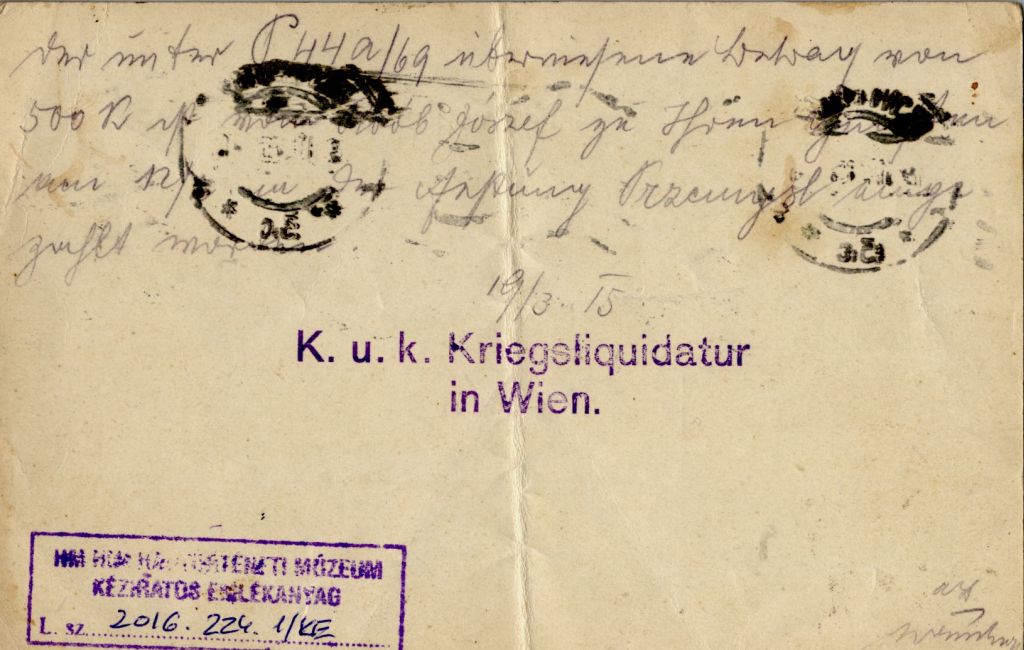 Der unter P 44a/69 überwiesene Betrag von
500 K ist von József zu Ihren
am 12/3 in der Festung Przemysl einge-
zahlt worden.
19/3. 15
K. u. k. Kriegsliquidatur
in Wien.
HM HIM HADTÖRTÉNETI MÚZEUM
KÉZIRATOS EMLÉKANYAG
L. sz. 2016. 224. 1/KE